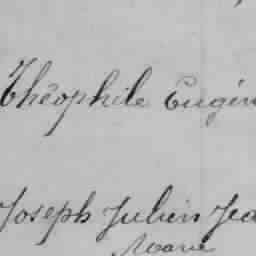 Théophile Eugèn
Joseph Julien Jea
Marie